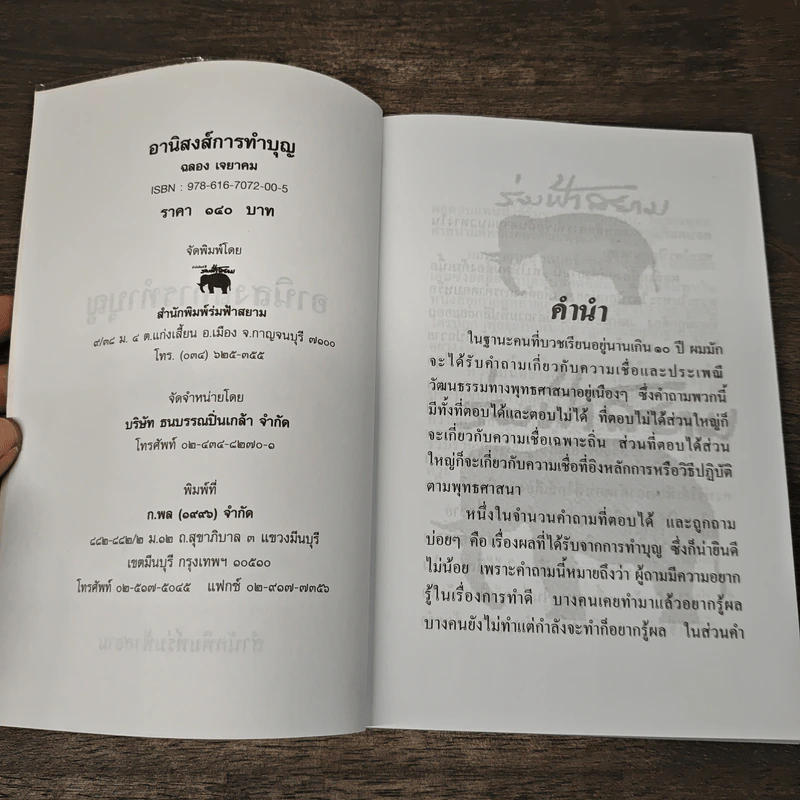 อานิสงส์การทำบุญ
ฉลอง เจยาคม
ISBN : 978-616-7072-00-5
ราคา ๑๔๐ บาท
จัดพิมพ์โดย
ร่มฟ้าสยาม
สำนักพิมพ์ร่มฟ้าสยาม
๙/๓๘ ม. ๔ ต.แก่งเสี้ยน อ.เมือง จ.กาญจนบุรี ๗๑๐๐๐
โทร. (๐๓๔) ๖๒๕-๓๕๕
จัดจำหน่ายโดย
บริษัท ธนบรรณปิ่นเกล้า จำกัด
โทรศัพท์ ๐๒-๔๓๔-๘๒๗๐-๑
พิมพ์ที่
ก.พล (๑๙๙๖) จำกัด
๔๘๒-๔๘๒/๒ ม.๑๒ ถ.สุขาภิบาล ๓ แขวงมีนบุรี
เขตมีนบุรี กรุงเทพฯ ๑๐๕๑๐
โทรศัพท์ ๐๒-๕๑๗-๕๐๔๕ แฟกซ์ ๐๒-๙๑๗-๗๓๕๖
ร่มฟ้าสยาม
คำนำ
ในฐานะคนที่บวชเรียนอยู่นานเกิน ๑๐ ปี ผมมัก
จะได้รับคำถามเกี่ยวกับความเชื่อและประเพณี
วัฒนธรรมทางพุทธศาสนาอยู่เนืองๆ ซึ่งคำถามพวกนี้
มีทั้งที่ตอบได้และตอบไม่ได้ ที่ตอบไม่ได้ส่วนใหญ่ก็
จะเกี่ยวกับความเชื่อเฉพาะถิ่น ส่วนที่ตอบได้ส่วน
ใหญ่ก็จะเกี่ยวกับความเชื่อที่อิงหลักการหรือวิธีปฏิบัติ
ตามพุทธศาสนา
หนึ่งในจำนวนคำถามที่ตอบได้ และถูกถาม
บ่อยๆ คือ เรื่องผลที่ได้รับจากการทำบุญ ซึ่งก็น่ายินดี
ไม่น้อย เพราะคำถามนี้หมายถึงว่า ผู้ถามมีความอยาก
รู้ในเรื่องการทำดี บางคนเคยทำมาแล้วอยากรู้ผล
บางคนยังไม่ทำแต่กำลังจะทำก็อยากรู้ผล ในส่วนคำ